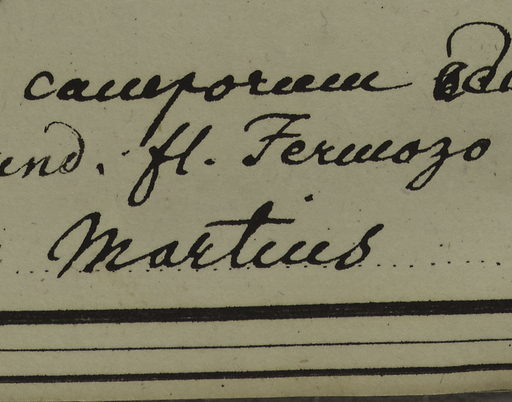 camporum
und. fl. Fermozo
Martius